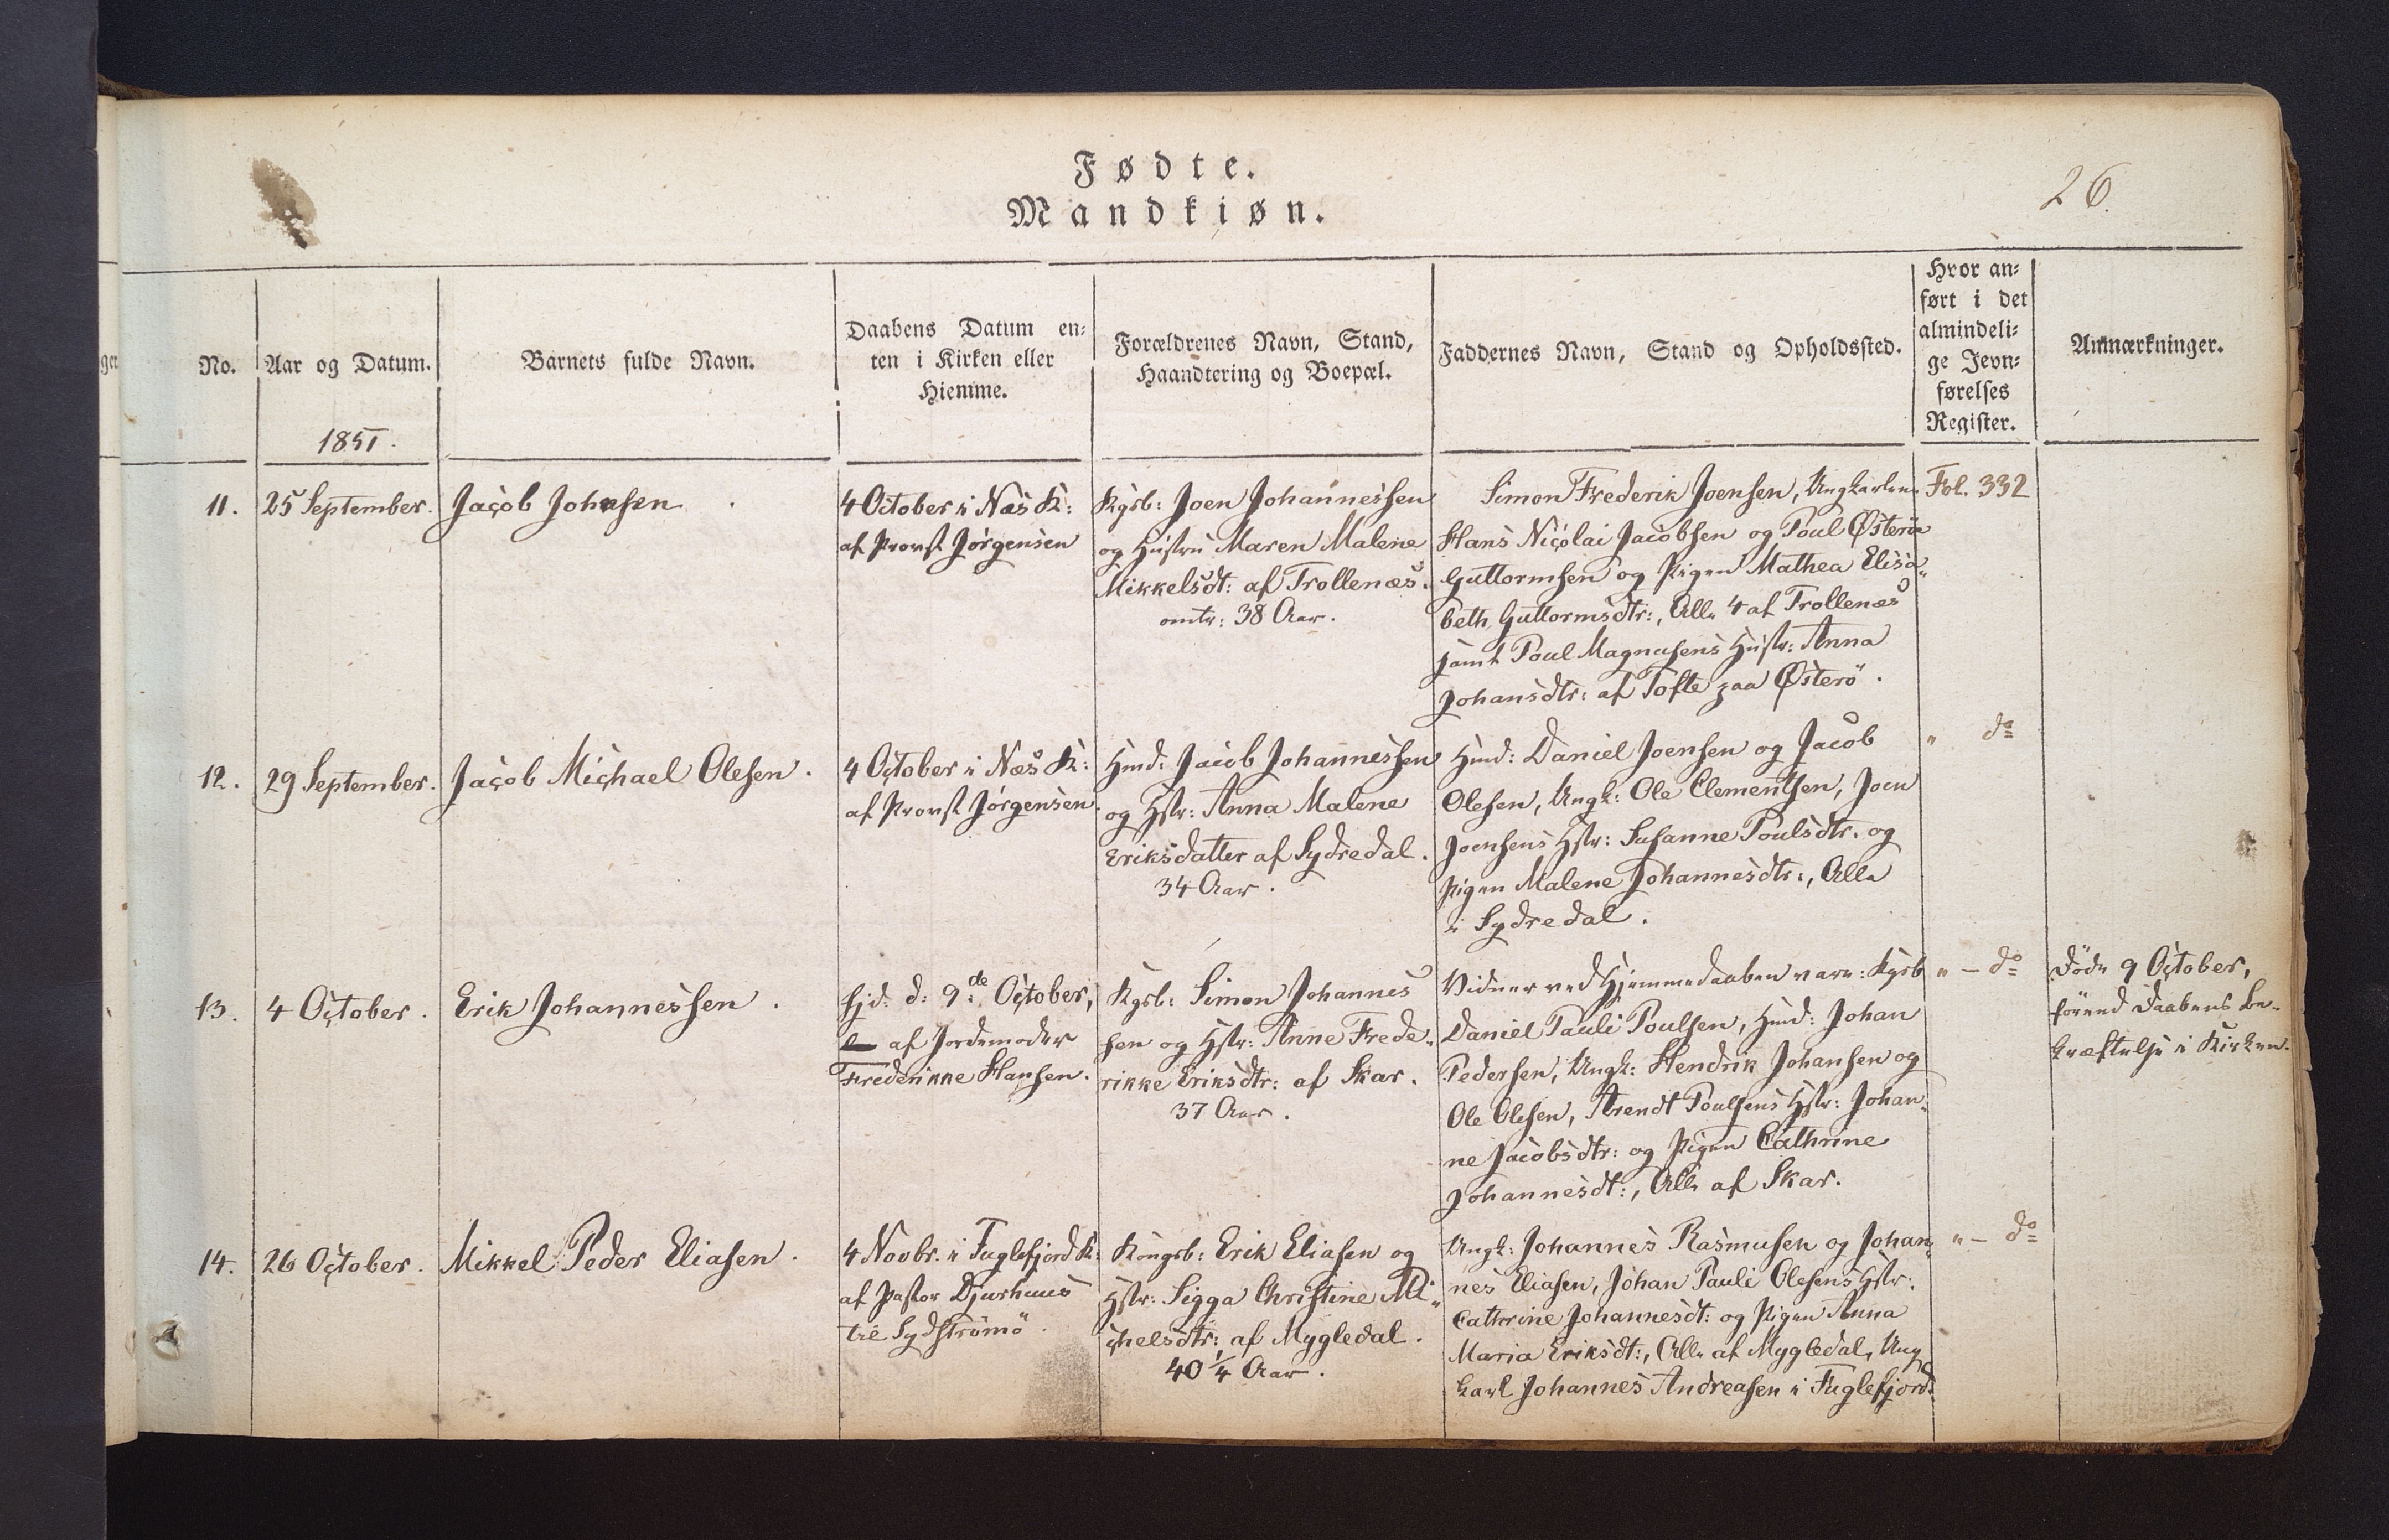 Fødte.
Mandkiøn.
26.
No.
Aar og Datum.
Barnets fulde Navn.
Daabens Datum en-
ten i Kirken eller
Hiemme.
Forældrenes Navn, Stand,
Haandtering og Boepæl.
Faddernes Navn, Stand og Opholdssted.
Hvor an-
ført i det
almindeli-
ge Jevn-
førelses
Register.
Anmærkninger.
1851.
11.
25 September.
Jacob Johnsen
4 October i Næs K:
af Provst Jörgensen
Kgsb: Joen Johannessen
og Hustru Maren Malene
Mikkelsdt: af Trollenæs.
omtr: 38 Aar.
Simon Frederik Joensen, Ungkarlene
Hans Nicolai Jacobsen og Poul Østerøe
Guttormsen og Pigen Mathea Elisa-
beth Guttormsdtr:, Alle 4 af Trollenæs
samt Poul Magnusens Hustr: Anna
Johansdtr: af Tofte paa Østerö.
Fol. 332
12.
29 September.
Jacob Michael Olesen.
4 October i Næs K:
af Provst Jörgensen.
Hmd: Jacob Johannessen
og Hstr: Anna Malene
Eriksdatter af Sydredal.
34 Aar.
Hmd: Daniel Joensen og Jacob
Olesen, Ungk: Ole Clementsen, Joen
Joensens Hstr: Susanne Poulsdtr. og
Pigen Malene Johannesdtr:, Alle
i Sydredal.
" do
13.
4 October.
Erik Johannessen.
Hjd: d: 9de October,
af Jordemoder
Frederikke Hansen.
Kgsb: Simon Johannes
sen og Hstr: Anne Frede-
rikke Eriksdtr: af Skar.
37 Aar.
Vidner ved Hjemmedaaben vare: Kgsb
Daniel Pauli Poulsen, Hmd: Johan
Pedersen, Ungk: Hendrik Johansen og
Ole Olesen, Arendt Poulsens Hstr: Johan-
ne Jacobsdtr: og Pigen Cathrine
Johannesdt:, Alle af Skar.
" - do
Döde 9 October,
förend Daabens Be-
kræftelse i Kirken.
14.
26 October.
Mikkel Peder Eliasen.
4 Novbr. i Fuglefjord K:
af Pastor Djurhuus
til Sydströmö.
Kongsb: Erik Eliasen og
Hstr: Sigga Christine Mi-
chelsdtr: af Mygledal.
40 1/4 Aar.
Ungk: Johannes Rasmusen og Johan-
nes Eliasen, Johan Pauli Olesens Hstr:
Cathrine Johannesdt: og Pigen Anna
Maria Eriksdt:, Alle af Mygledal, Ung
karl Johannes Andreasen i Fuglefjord.
" - do